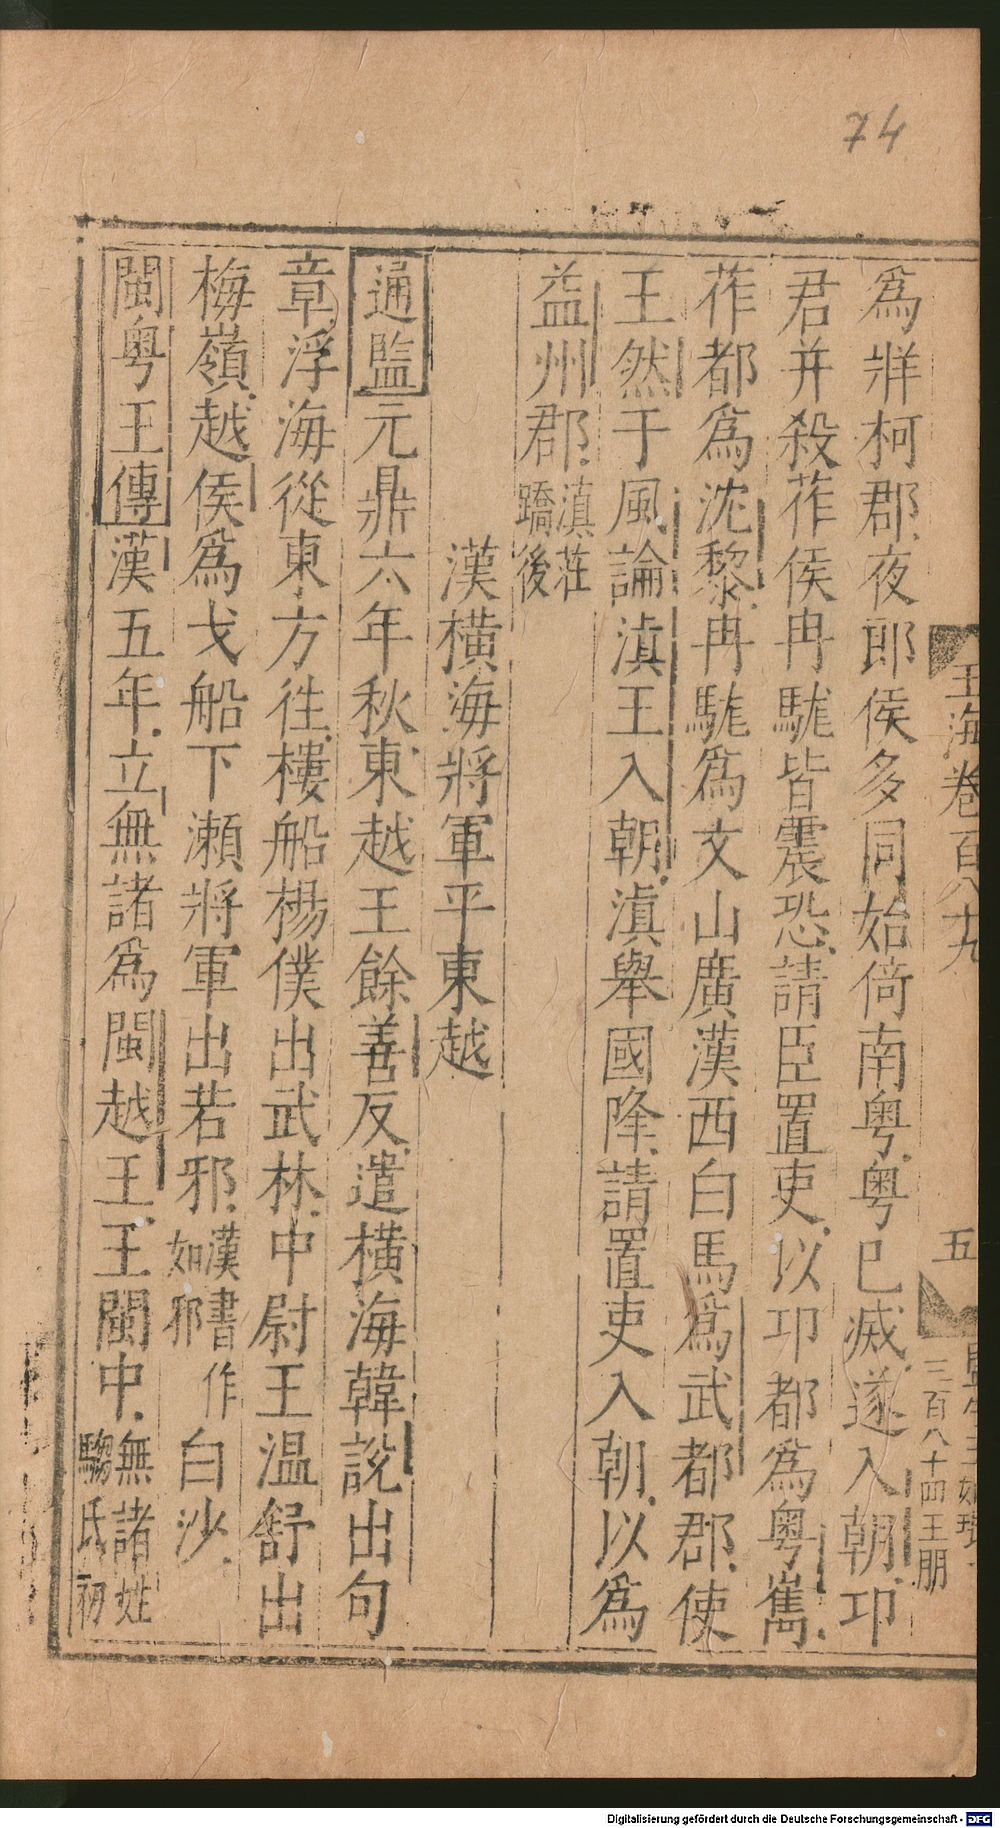 74
玉海卷百八九
五
三百八十四王朋
為牂柯郡夜郎侯多同始倚南粤粤已滅遂入朝卭
君并殺莋侯冉駹皆震恐請臣置吏以卭都為粤嶲
莋都為沈黎冉駹為文山廣漢西白馬為武都郡使
王然于風諭滇王入朝滇舉國降請置吏入朝以為
益州郡滇莊
蹻後
漢橫海將軍平東越
通監元鼎六年秋東越王餘善反遣橫海韓說出句
章浮海從東方往樓船楊僕出武林中尉王温舒出
梅嶺越侯為戈船下瀨將軍出若邪漢書作
如邪白沙
閩粤王傳漢五年立無諸為閩越王王閩中無諸姓
騶氏初
Digitalisierung gefördert durch die Deutsche Forschungsgemeinschaft - DFG